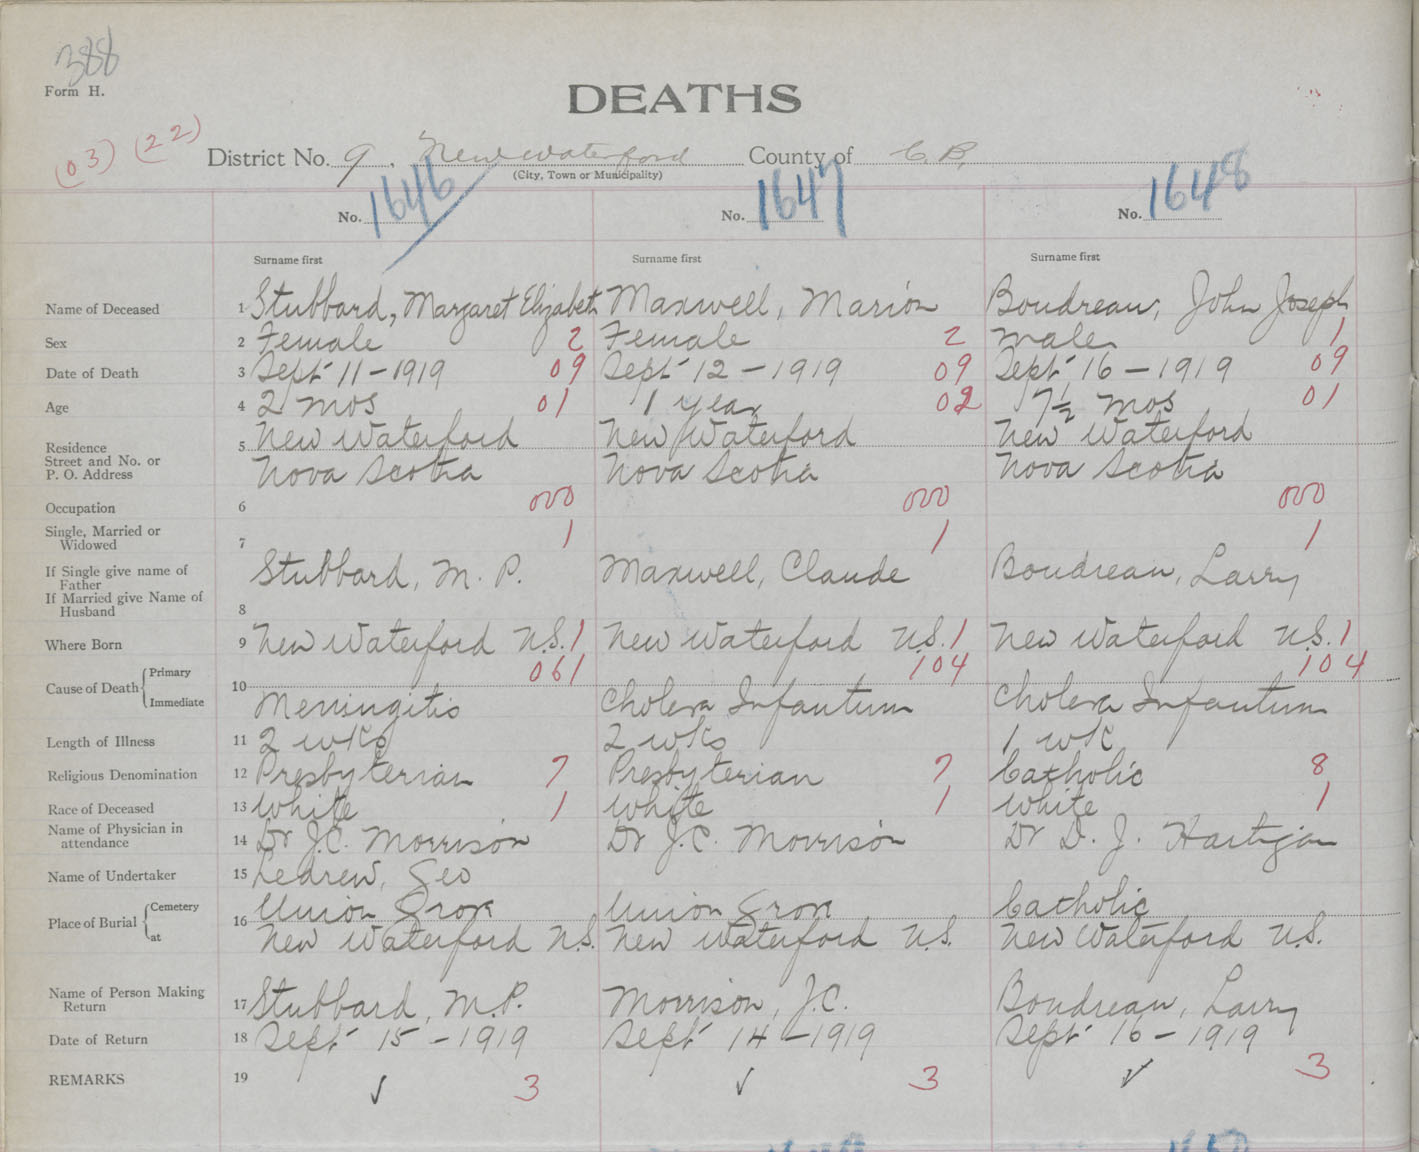 388
Form H.
DEATHS
(03) (22)
District No. 9, New Waterford County of C.B.
(City, Town or Municipality)
No. 1646 No. 1647 No. 1648
Surname first Surname first Surname first
Name of Deceased 1 Stubbard, Margaret Elizabeth Maxwell, Marion Boudreau, John Joseph
Sex 2 Female 2 Female 2 Male 1
Date of Death 3 Sept 11-1919 09 Sept 12-1919 09 Sept 16-1919 09
Age 4 2 mos 01 1 year 02 7½ mos 01
Residence 5 New Waterford New Waterford New Waterford
Street and No. or
P. O. Address Nova Scotia Nova Scotia Nova Scotia
Occupation 6 000 000 000
Single, Married or
Widowed 7 1 1 1
If Single give name of
Father Stubbard, M. P. Maxwell, Claude Boudreau, Larry
If Married give Name of
Husband 8
Where Born 9 New Waterford N.S. 1 New Waterford N.S. 1 New Waterford N.S. 1
Cause of Death Primary 10 061 104 104
Immediate Meningitis Cholera Infantum Cholera Infantum
Length of Illness 11 2 wks 2 wks 1 wk
Religious Denomination 12 Presbyterian 7 Presbyterian 7 Catholic 8
Race of Deceased 13 White 1 White 1 White 1
Name of Physician in
attendance 14 Dr J.C. Morrison Dr J.C. Morrison Dr D. J. Hartigan
Name of Undertaker 15 Ledrew, Geo
Place of Burial Cemetery 16 Union Grove Union Grove Catholic
at New Waterford N.S. New Waterford N.S. New Waterford N.S.
Name of Person Making
Return 17 Stubbard, M.P. Morrison, J.C. Boudreau, Larry
Date of Return 18 Sept 15-1919 Sept 14-1919 Sept 16-1919
REMARKS 19 ✓ 3 ✓ 3 ✓ 3